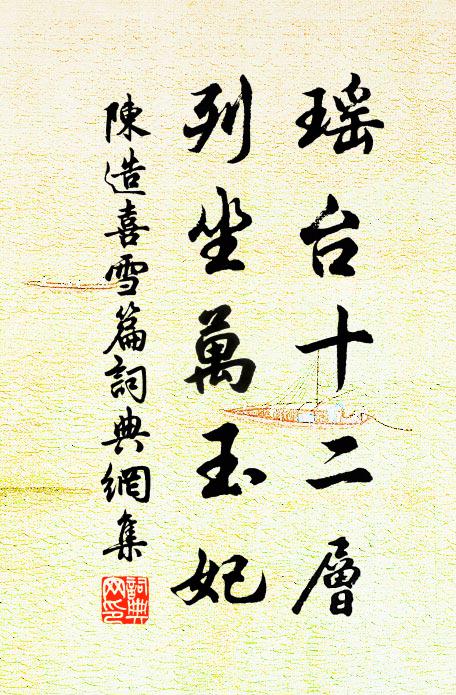 瑶台十二層
列坐萬玉妃
陳造喜雪篇詞典網集
詞典網印